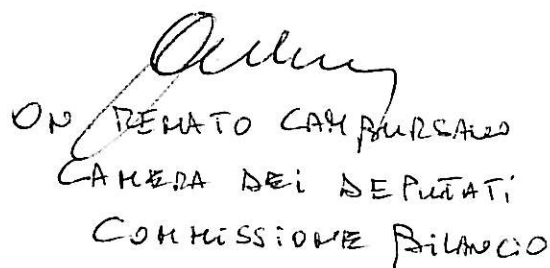 ON RENATO CAMBURSANO
CAMERA DEI DEPUTATI
COMMISSIONE BILANCIO